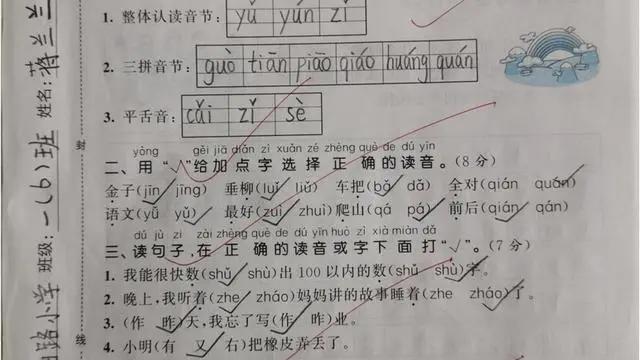 1. 整体认读音节: yǔ yún zǐ
2. 三拼音节: guò tiān piāo qiáo huáng quán
3. 平舌音: cǎi zǐ sè
yòng gěi jiā diǎn zì xuǎn zé zhèng què de dú yīn
二、用“√”给加点字选择正确的读音。(8分)
金子(jīn jīng) 垂柳(liǔ liǔ) 车把(bǎ dǎ) 全对(qián quán)
语文(yǔ yǔ) 最好(zuì zhuì) 爬山(qá pá) 前后(qián qán)
dú jù zi zài zhèng què de dú yīn huò zì xià miàn dǎ
三、读句子,在正确的读音或字下面打“√”。(7分)
1. 我能很快数(shǔ shù)出100以内的数(shǔ shù)字。
2. 晚上,我听着(zhe zháo)妈妈讲的故事睡着(zhe zháo)了。
3. (作 昨)天,我忘了写(作 昨)业。
4. 小明(有 又 右)把橡皮弄丢了。
路小学 班级: 一(6)班 姓名: 蒋兰兰
封
线